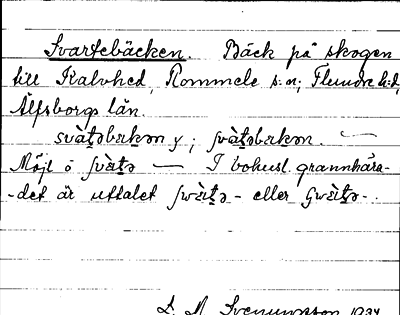 Svartebäcken. Bäck på skogen
till Kalvhed, Rommele s:n; Flundre h:d,
Älfsborgs län.
svàʈəbɛkən y; ʃvàʈəbɛkən.
Möjl ö ʃvàʈə — I bohusl. grannhära-
-det är uttalet ʃwàʈə- eller
S. M. Svenungsson 1934